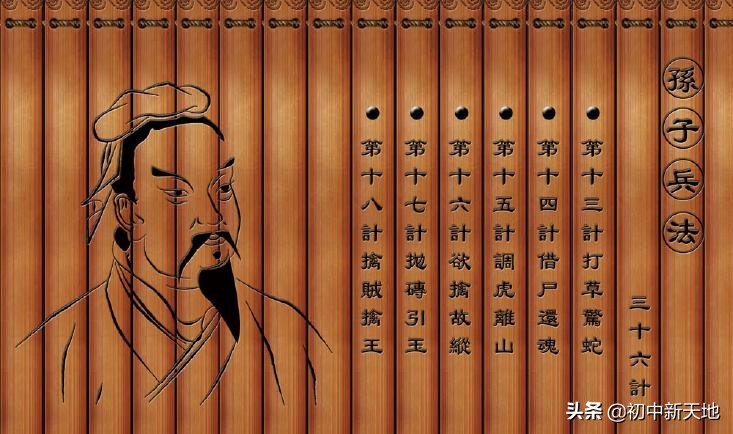 孫子兵法
三十六計
第十三計打草驚蛇
第十四計借尸還魂
第十五計調虎離山
第十六計欲擒故縱
第十七計拋磚引玉
第十八計擒賊擒王
头条 @初中新天地